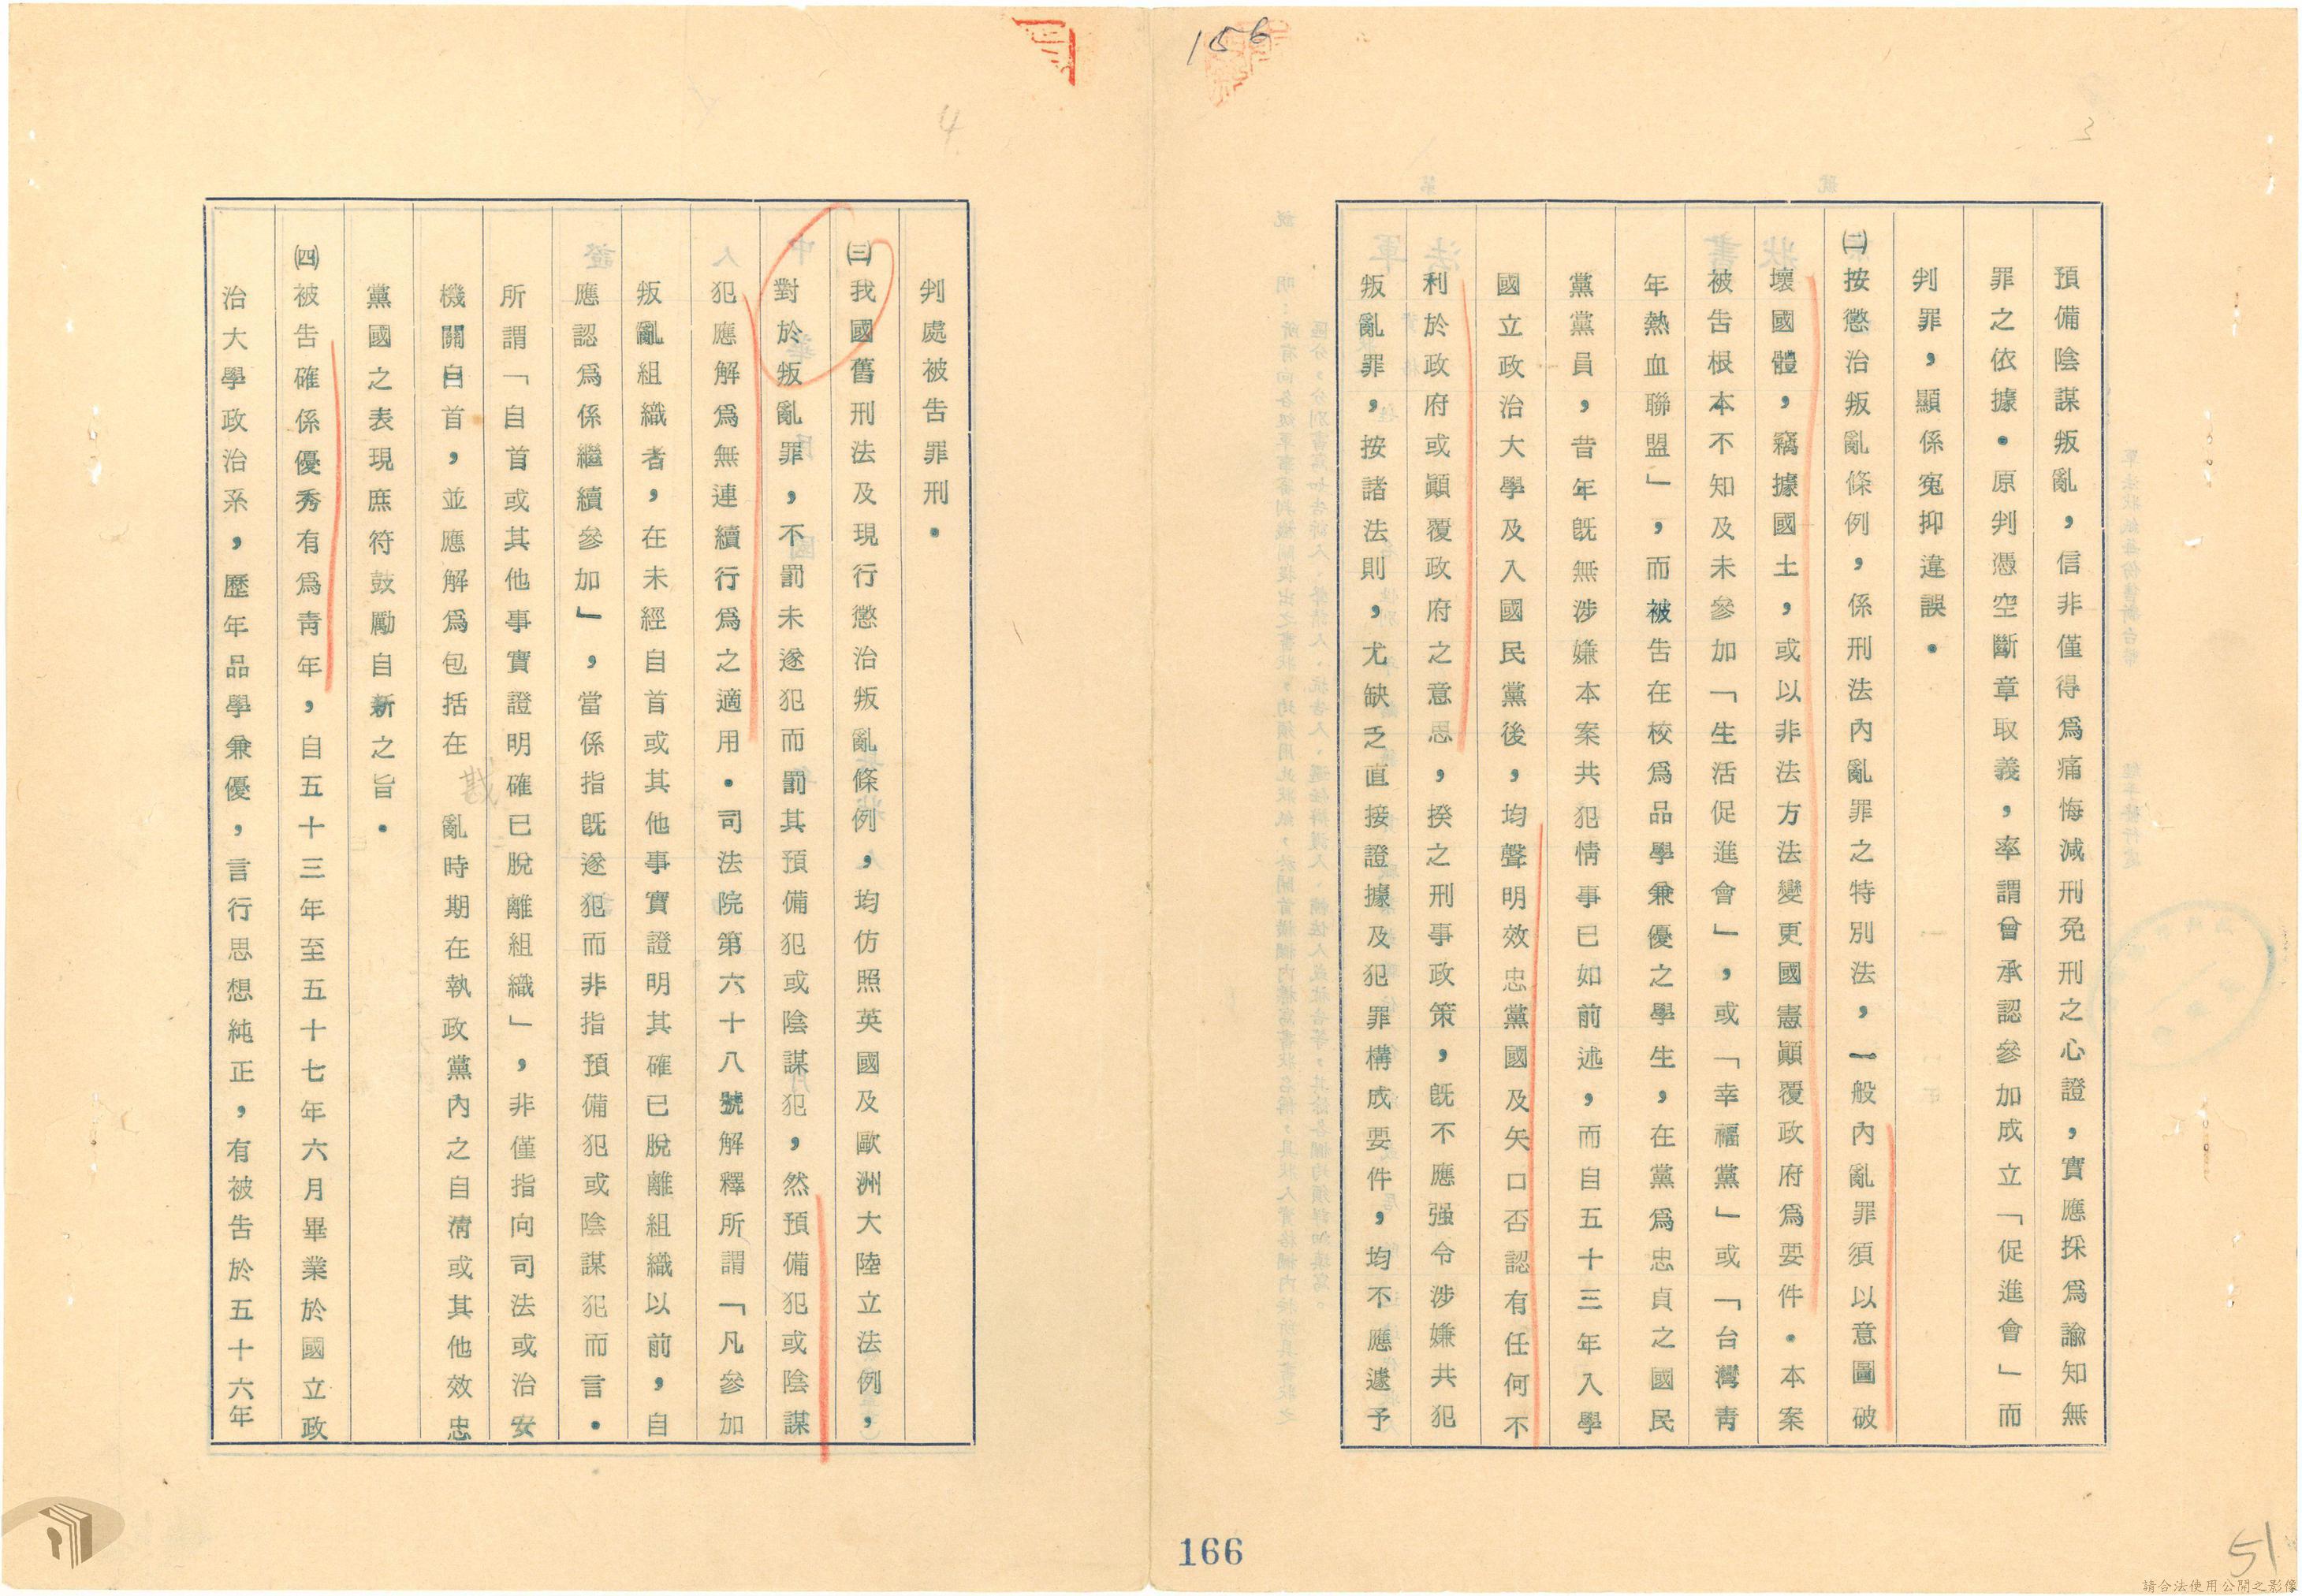 156
3
預備陰謀叛亂，信非僅得為痛悔減刑免刑之心證，實應採為諭知無
罪之依據．原判憑空斷章取義，率謂曾承認參加成立「促進會」而
判罪，顯係寃抑違誤．
㈡按懲治叛亂條例，係刑法內亂罪之特別法，一般內亂罪須以意圖破
壞國體，竊據國土，或以非法方法變更國憲顚覆政府為要件．本案
被告根本不知及未參加「生活促進會」，或「幸福黨」或「台灣靑
年熱血聯盟」，而被告在校為品學兼優之學生，在黨為忠貞之國民
黨黨員，昔年旣無涉嫌本案共犯情事已如前述，而自五十三年入學
國立政治大學及入國民黨後，均聲明效忠黨國及矢口否認有任何不
利於政府或顚覆政府之意思，揆之刑事政策，旣不應强令涉嫌共犯
叛亂罪，按諸法則，尤缺乏直接證據及犯罪構成要件，均不應遽予
4
判處被告罪刑．
㈢我國舊刑法及現行懲治叛亂條例，均仿照英國及歐洲大陸立法例，
對於叛亂罪，不罰未遂犯而罰其預備犯或陰謀犯，然預備犯或陰謀
犯應解為無連續行為之適用．司法院第六十八號解釋所謂「凡參加
叛亂組織者，在未經自首或其他事實證明其確已脫離組織以前，自
應認為係繼續參加」，當係指旣遂犯而非指預備犯或陰謀犯而言．
所謂「自首或其他事實證明確已脫離組織」，非僅指向司法或治安
機關自首，並應解為包括在戡亂時期在執政黨內之自清或其他效忠
黨國之表現庶符鼓勵自新之旨．
㈣被告確係優秀有為靑年，自五十三年至五十七年六月畢業於國立政
治大學政治系，歷年品學兼優，言行思想純正，有被告於五十六年
166
51
請合法使用公開之影像